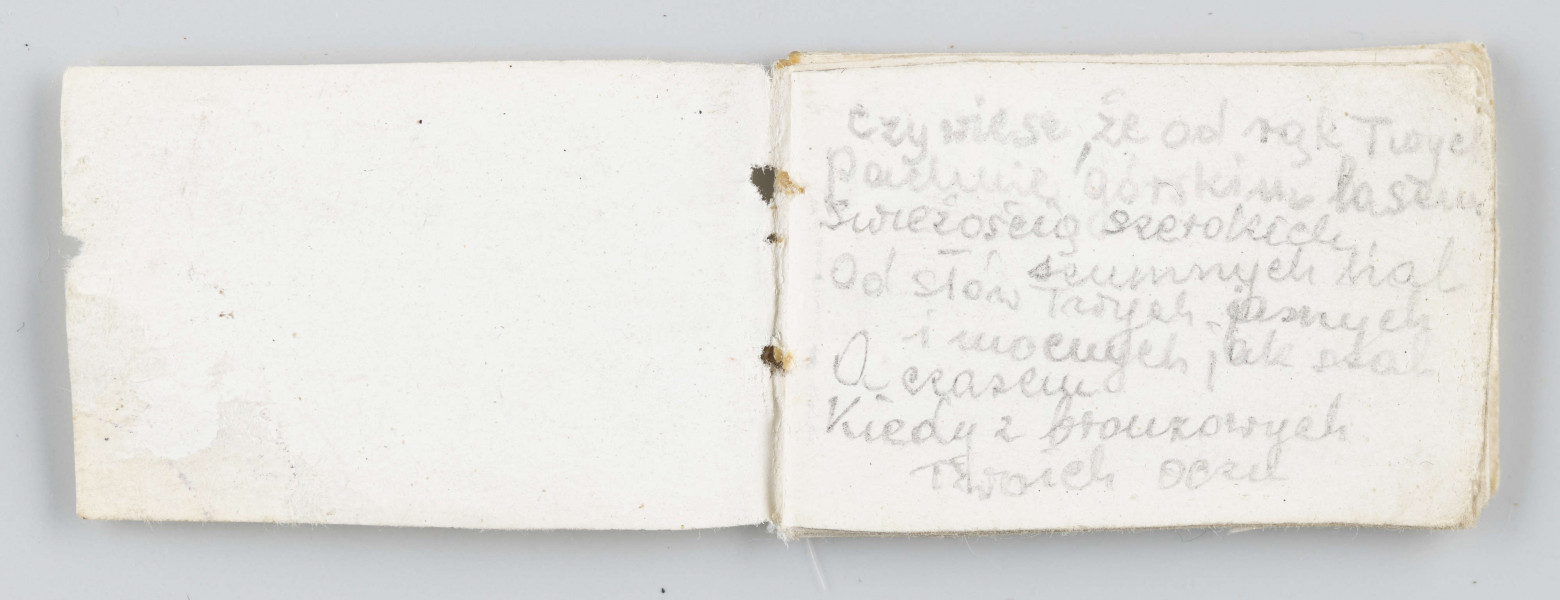 Czy wiesz, że od rąk Twych
Pachnie górskim lasem
Świeżością szerokich,
szumnych hal
Od słów Twych jasnych
i mocnych jak stal
A czasem
Kiedy z bronzowych
Twoich oczu